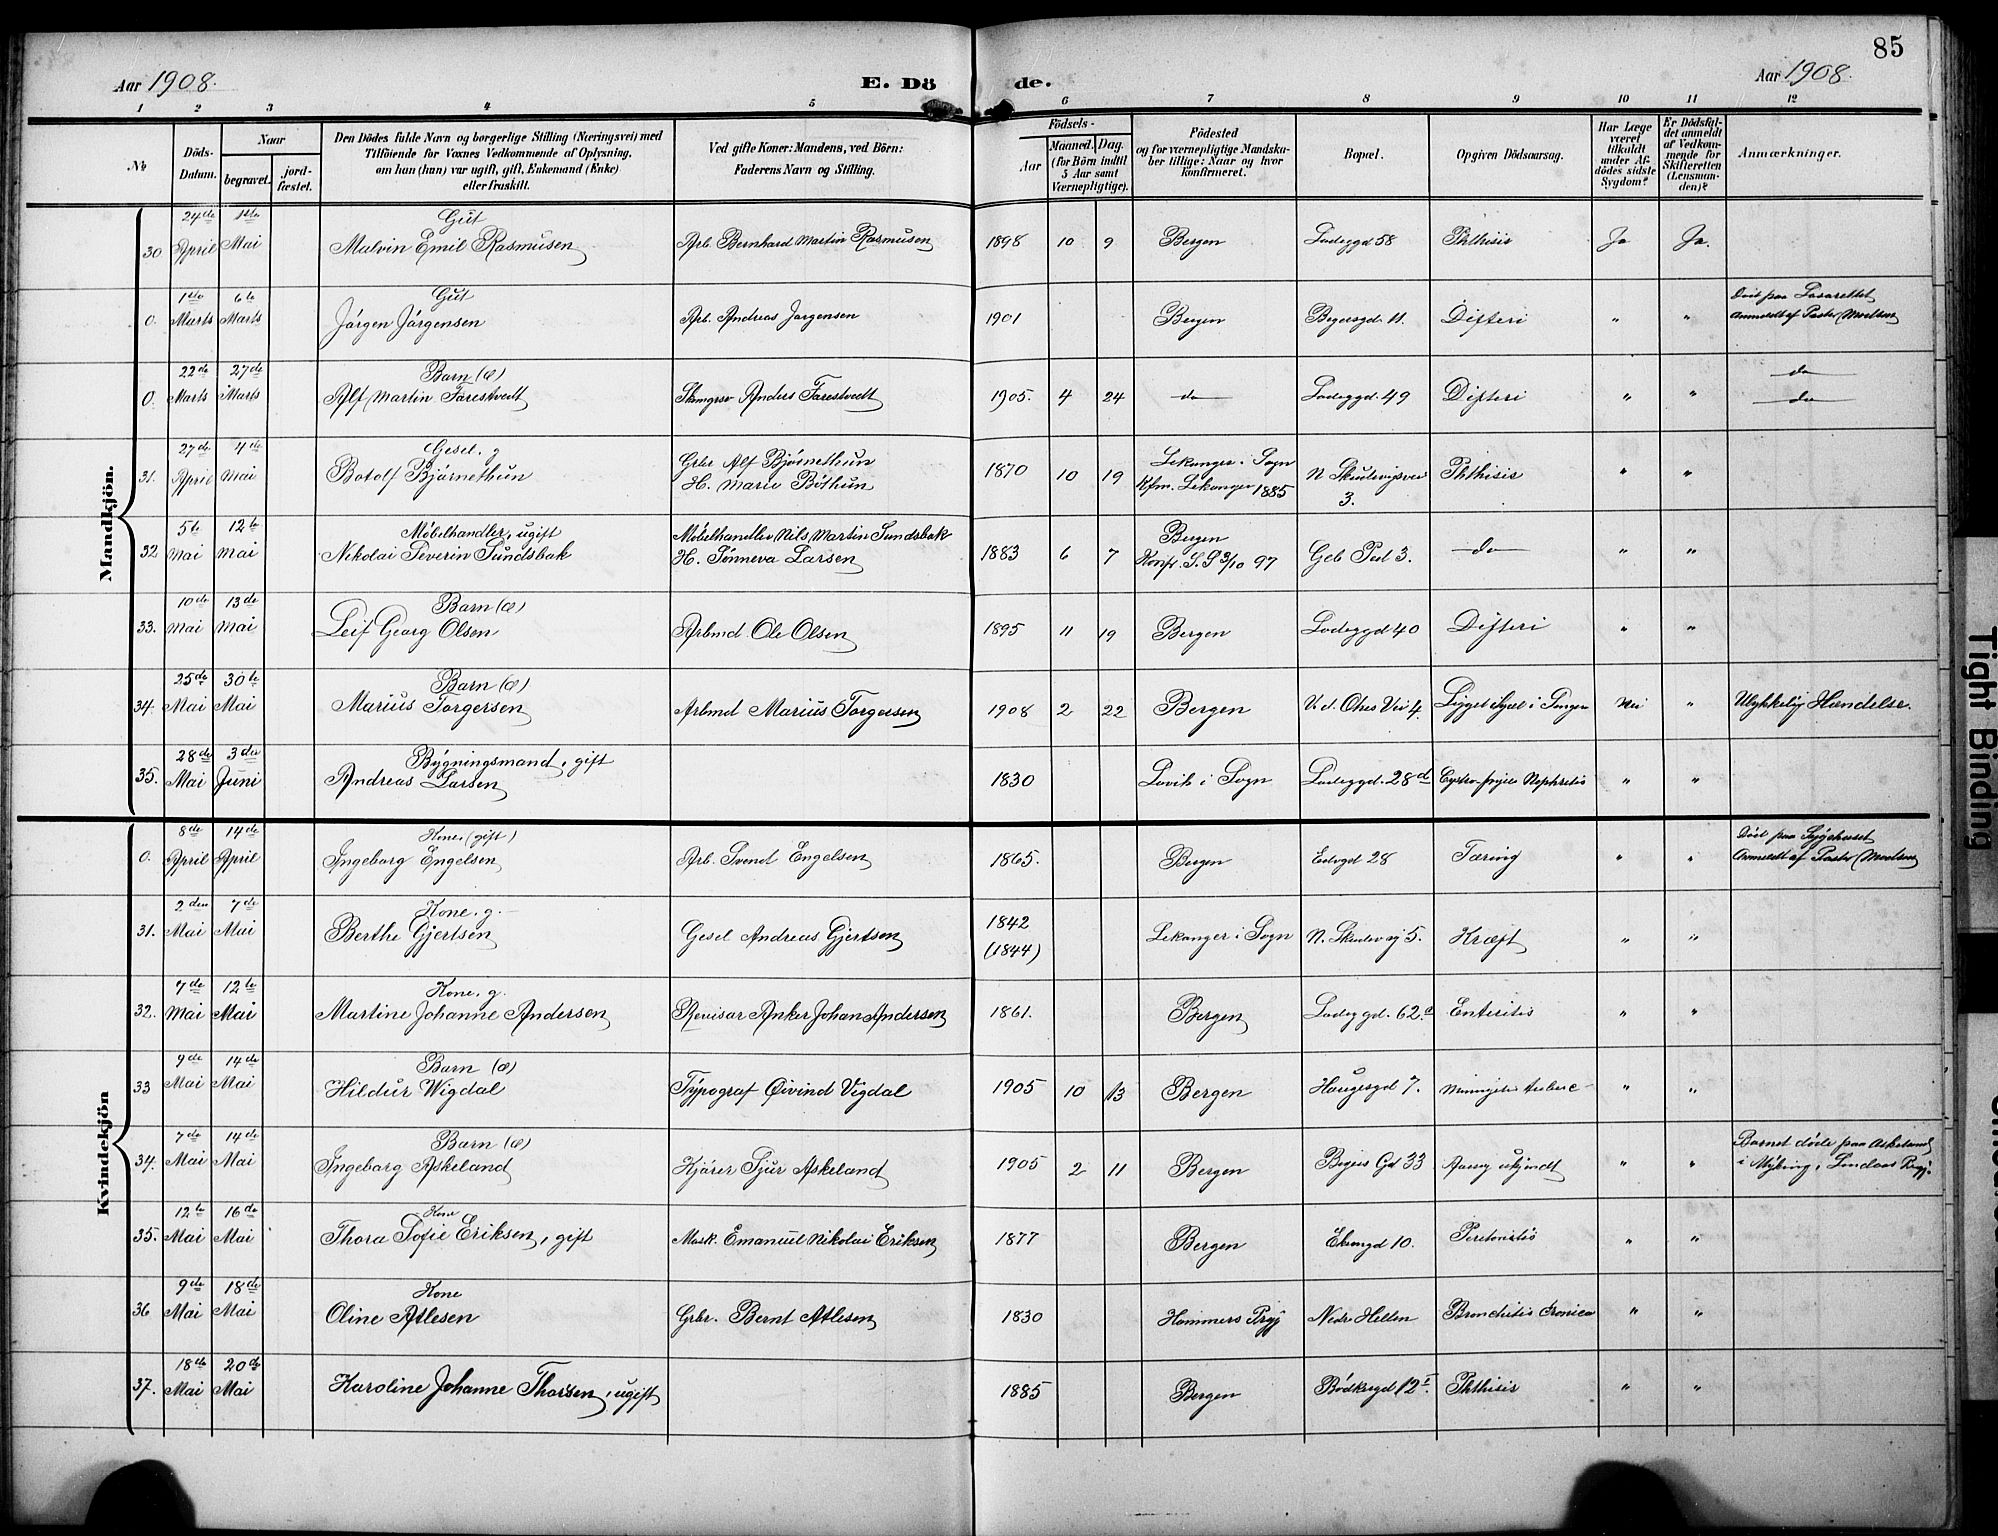 85
Aar 1908.
E. Dö
de.
Aar 1908.
1 2 3 4 5 6 7 8 9 10 11 12
№
Döds-
Datum.
Naar
begravet.
jord-
fæstet.
Den Dödes fulde Navn og borgerlige Stilling (Næringsvei) med
Tilföiende for Voxnes Vedkommende af Oplysning,
om han (hun) var ugift, gift, Enkemand (Enke)
eller fraskilt.
Ved gifte Koner: Mandens, ved Börn:
Faderens Navn og Stilling.
Födsels-
Aar
Maaned. Dag.
(for Börn indtil
5 Aar samt
Værnepligtige).
Födested
og for værnepligtige Mandska-
ber tillige: Naar og hvor
konfirmeret.
Bopæl.
Opgiven Dödsaarsag.
Har Læge
været
tilkaldt
under Af-
dödes sidste
Sygdom?
Er Dödsfal-
det anmeldt
af Vedkom-
mende for
Skifteretten
(Lensman-
den)?
Anmærkninger.
Mandkjön.
24de 1ste Gut
30. April Mai Malvin Emil Rasmusen Arb. Bernhard Martin Rasmusen 1898 10 9 Bergen Ladeggd 58 Phthisis Ja Ja.
1ste 6te Gut Död paa Lasarettet
0. Marts Marts Jörgen Jörgensen Arb. Andreas Jörgensen 1901 Bergen 11. Difteri " " Anmeldt af Pastor
22de 27de Barn (Æ) do
0. Marts Marts Alf Martin Farestvedt Anders Farestvedt 1905. 4 24 do Ladeggd. 49 Difteri " " do
27de 4de Gesel. g Grbr Alf Björnethun Lekanger i Sogn
31. April Mai Botolf Björnethun H. Marie Böthun 1870 10 19 Kfm. Lekanger 1885 N Skutevigsvei Phthisis " "
3.
5te 12te Møbelhandler, ugift Møbelhandler Nils Martin Sundsbak Bergen
32 Mai Mai Nikolai Severin Sundsbak H. Sönneva Larsen 1883 6 7 Konf. 3/10 97 3. do " "
10de 13de Barn (Æ)
33. Mai Mai Leif Georg Olsen Arbmd Ole Olsen 1895 11 19 Bergen Ladeggd 40 Difteri " "
25de 30te Barn (Æ)
34. Mai Mai Marius Torgersen Arbmd Marius Torgersen 1908 2 22 Bergen Vei 4. i Nei " Ulykkelig Hændelse.
28de 3die Bygningsmand, gift
35. Mai Juni Andreas Larsen 1830 Lavik i Sogn Ladeggd. 28d Nephritis " "
Kvindekjön
8de 14de Kone (gift) Död paa Sygehuset
0. April April Ingeborg Engelsen Arb. Svend Engelsen 1865. Bergen 28 Tæring " " Anmeldt af Pastor
2den 7de Kone. g. 1842
31. Mai Mai Berthe Gjertsen Gesel Andreas Gjertsen (1844) Lekanger i Sogn N. Skutevig 5. Kræft " "
7de 12te Kone. g.
32. Mai Mai Martine Johanne Andersen Revisor Anker Johan Andersen 1861. Bergen Ladeggd. 62 Enteritis " "
9de 14de Barn (Æ)
33 Mai Mai Hildur Wigdal Typograf Öivind Vigdal 1905 10 13 Bergen Haugesgd 7. " "
7de 14de Barn (Æ) Barnet döde paa Askeland
34. Mai Mai Ingeborg Askeland Kjörer Sjur Askeland 1905 2 11 Bergen Gd 33 Aarsag ukjendt " " i Myking i Lindaas Prgj.
12te 16de Kone
35. Mai Mai Thora Sofie Eriksen, gift Mask. Emanuel Nikolai Eriksen 1877 Bergen 10. Peritonitis " "
9de 18de Kone
36 Mai Mai Oline Atlesen Grbr. Bernt Atlesen 1830 Hammers Prgj Nedre Hellen Bronchitis Cronica " "
18de 20de
37. Mai Mai Karoline Johanne Thorsen, ugift 1885 Bergen 12 Phthisis " "
Tight Binding